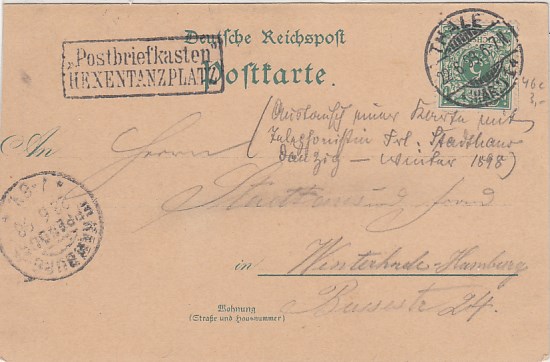 „Postbriefkasten"
HEXENTANZPLATZ
Deutsche Reichspost
Postkarte.
THALE
(HARZ)
46c
3,-
An
Herrn
(Austausch einer Karte mit
Telefonistin Frl. Stadthaus
Danzig – Winter 1898)
in
Winterhude-Hamburg
24.
Wohnung
(Straße und Hausnummer)